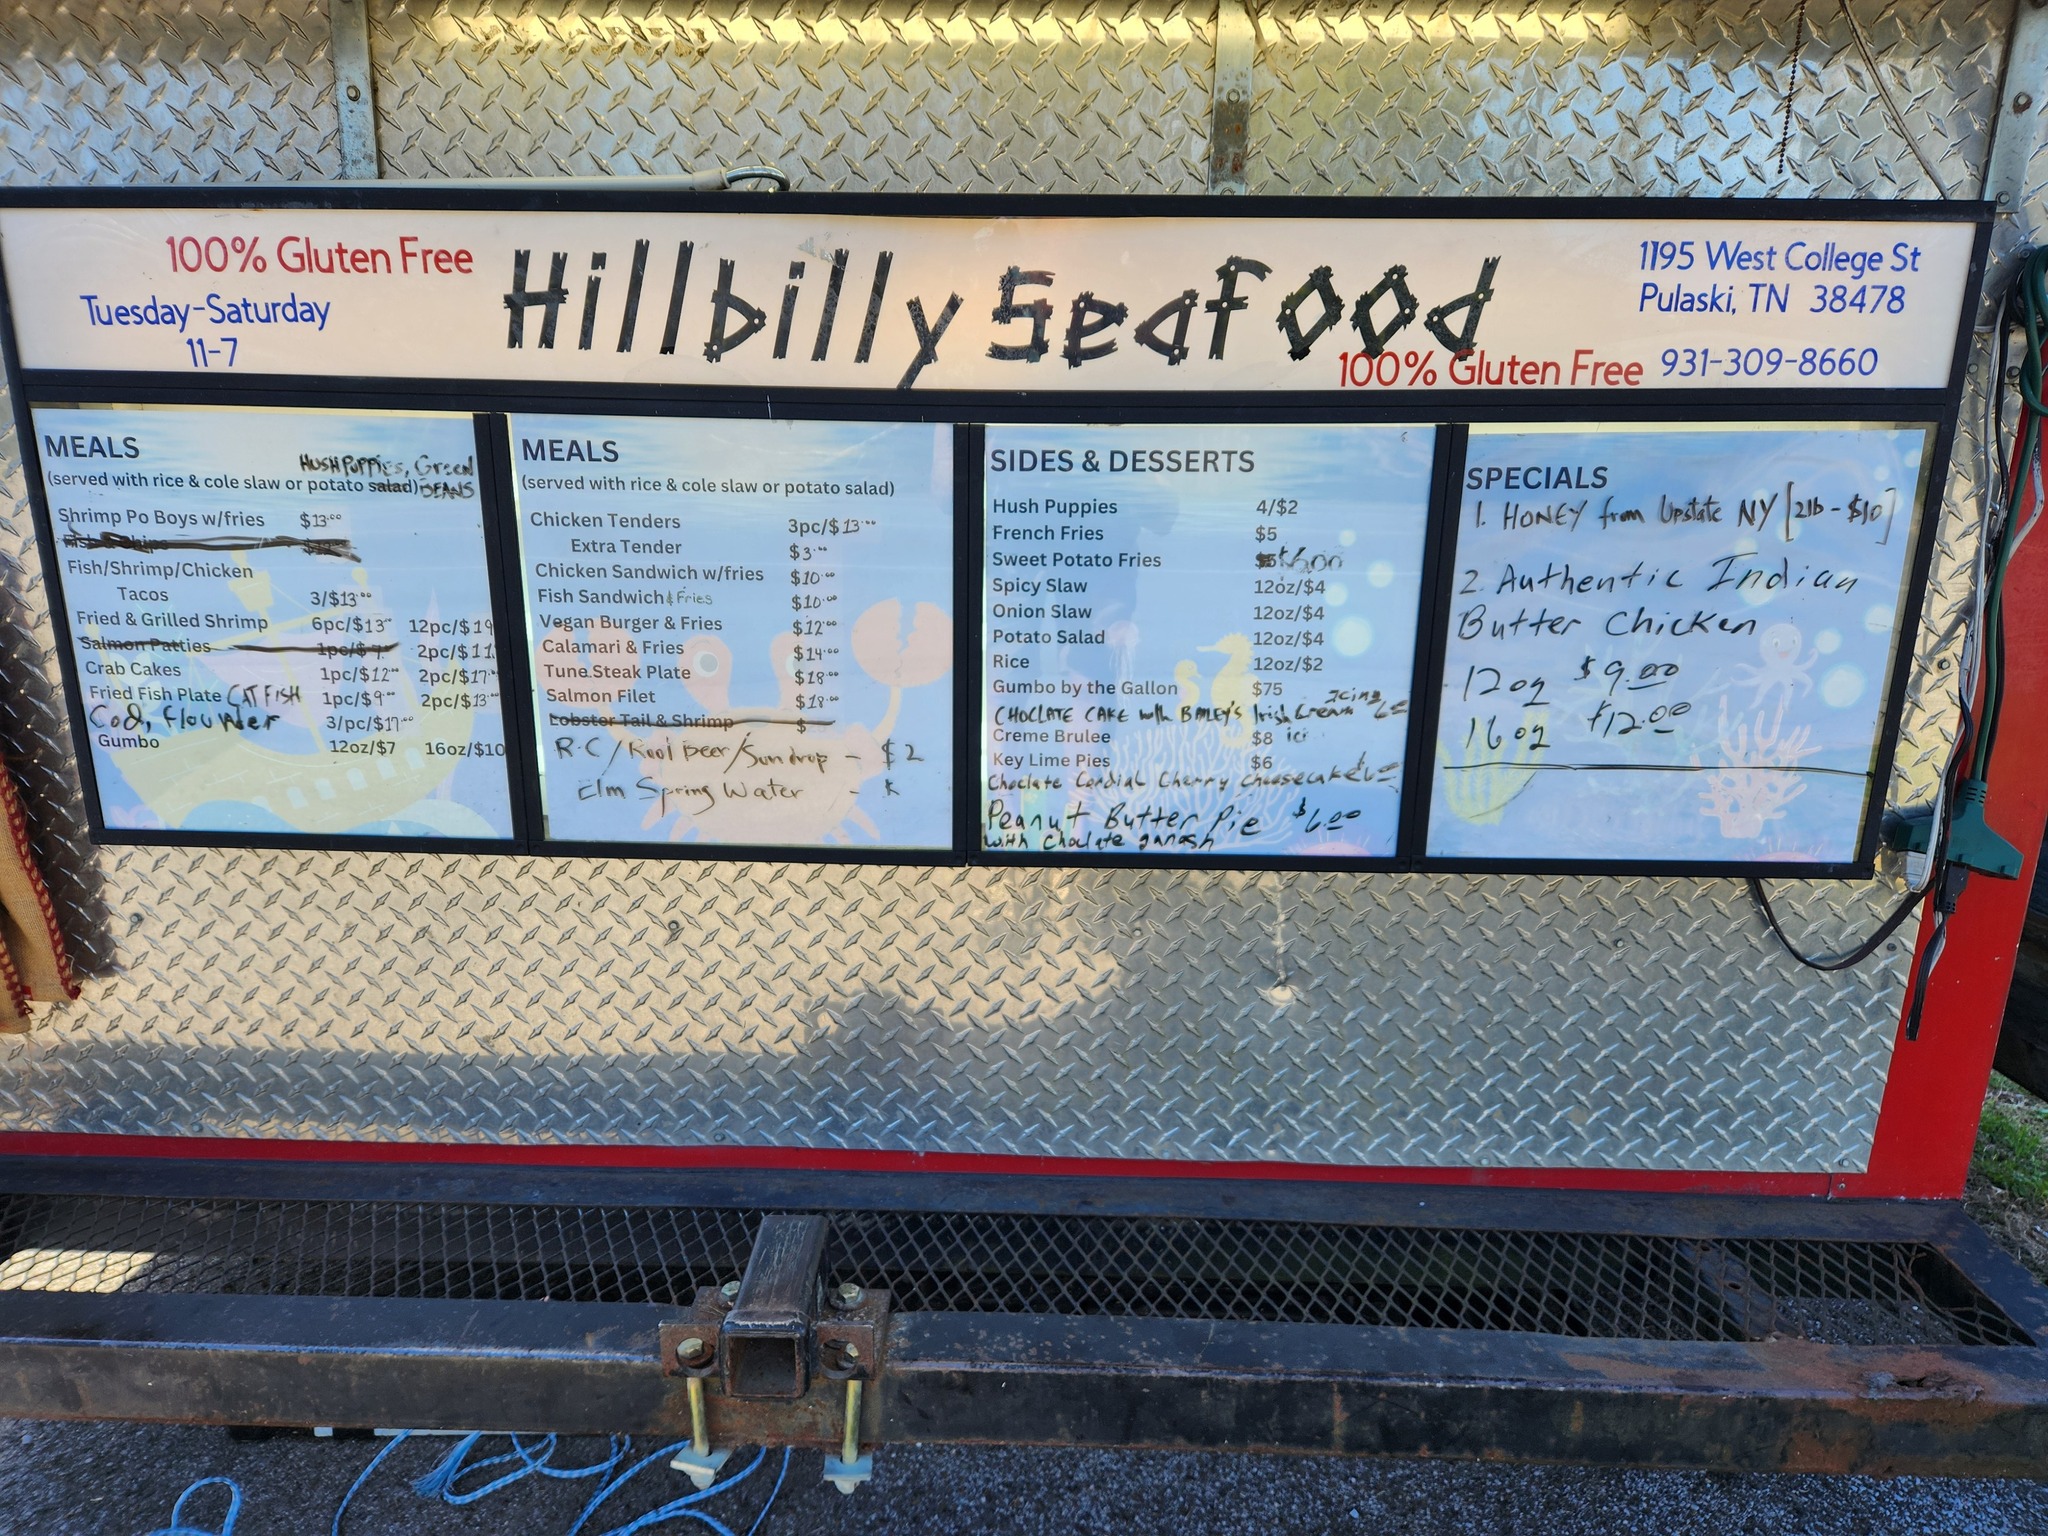 100% Gluten Free
Tuesday-Saturday
11-7
Hillbilly Seafood
100% Gluten Free
1195 West College St
Pulaski, TN 38478
931-309-8660
MEALS
HUSHPUPPIES, Green
BEANS
(served with rice & cole slaw or potato salad)
Shrimp Po Boys w/fries $13.00
Fish/Shrimp/Chicken
Tacos 3/$13.00
Fried & Grilled Shrimp 6pc/$13.00 12pc/$19
Salmon Patties 1pc/$7 2pc/$11
Crab Cakes 1pc/$12.00 2pc/$17.00
Fried Fish Plate CATFISH 1pc/$9.00 2pc/$13.00
Cod, Flounder 3/pc/$17.00
Gumbo 12oz/$7 16oz/$10
MEALS
(served with rice & cole slaw or potato salad)
Chicken Tenders 3pc/$13.00
Extra Tender $3.00
Chicken Sandwich w/fries $10.00
Fish Sandwich & Fries $10.00
Vegan Burger & Fries $12.00
Calamari & Fries $14.00
Tune Steak Plate $18.00
Salmon Filet $18.00
Lobster Tail & Shrimp $
R.C/Root beer/Sundrop - $2
Elm Spring Water -
SIDES & DESSERTS
Hush Puppies 4/$2
French Fries $5
Sweet Potato Fries $6.00
Spicy Slaw 12oz/$4
Onion Slaw 12oz/$4
Potato Salad 12oz/$4
Rice 12oz/$2
Gumbo by the Gallon $75
icing
CHOCLATE CAKE with BAILEY'S Irish Cream 6.00
Creme Brulee $8
Key Lime Pies $6
Choclate Cordial Cherry Cheesecake $6.00
Peanut Butter Pie $6.00
with choclate ganash
SPECIALS
1. HONEY from Upstate NY [2lb - $10]
2. Authentic Indian
Butter Chicken
12oz $9.00
16oz $12.00